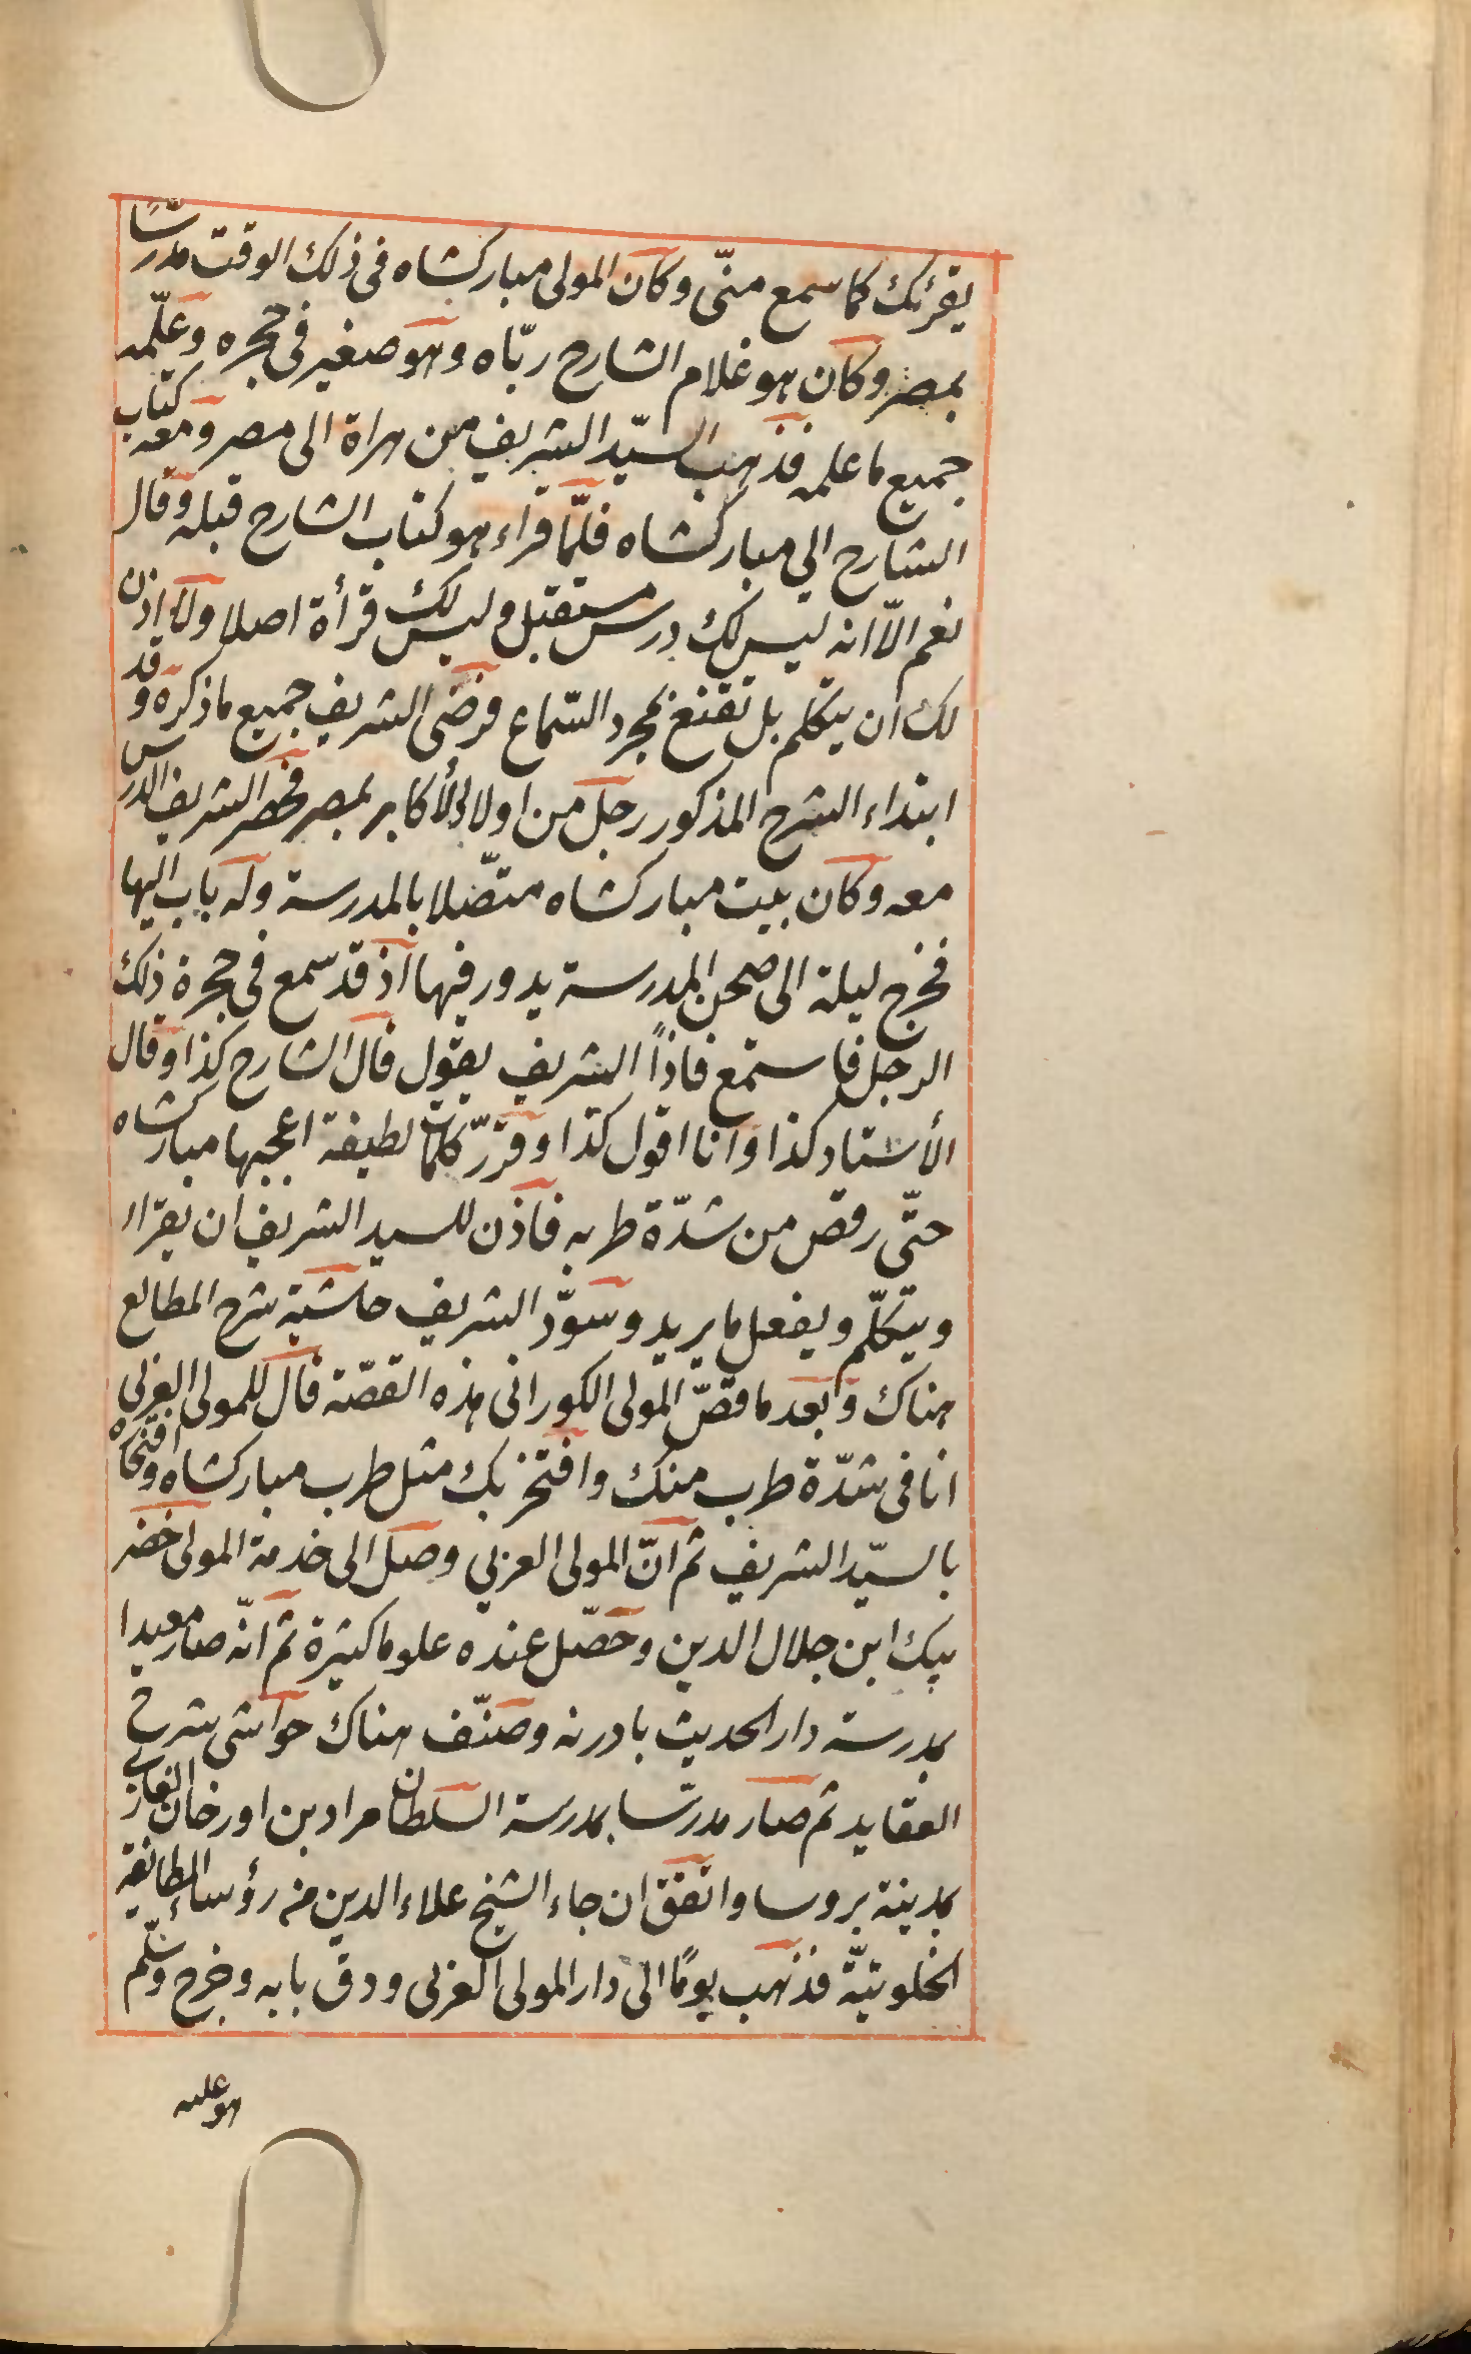 يقرئك كما سمع منّى وكان المولى مباركشاه فى ذلك الوقت مدرّسًا
بمصر وكان هو غلام الشارح ربّاه وهو صغير فى حجره وعلّمه
جميع ما علمه فذهب السيّد الشريف من هراة الى مصر ومعه كتاب
الشارح الى مباركشاه فلمّا قراء هو كتاب الشارح قبله وقال
نعم الّا انه ليس لك درس مستقبل وليس لك قرأة اصلا ولا اذن
لك ان يتكلم بل تقنع بمجرد السّماع فرضى الشريف جميع ما ذكره وقد
ابتداء الشرح المذكور رجل من اولاد الأكابر بمصر فحضر الشريف الدرس
معه وكان بيت مباركشاه متصّلا بالمدرسة وله باب اليها
فخرج ليلة الى صحن المدرسة يدور فيها اذ قد سمع فى حجرة ذلك
الرجل فاستمع فاذاً الشريف يقول قال الشارح كذا وقال
الأستاد كذا وانا اقول كذا وقرّر كلمات لطيفة اعجبها مباركشاه
حتّى رقص من شدّة طربه فاذن للسيد الشريف ان يقرّاا
ويتكلّم ويفعل ما يريد وسوّد الشريف حاشية شرح المطالع
هناك وابعد ما قصّ المولى الكورانى هذه القصّة قال للمولى العربى
انا فى شدّة طرب منك وافتخر بك مثل طرب مباركشاه وافتخاره
بالسيّد الشريف ثم انّ المولى العربي وصل الى خدمة المولى خضر
بيك ابن جلال الدين وحصّل عنده علوما كثيرة ثم انّه صار معيدا
بمدرسة دار الحديث بادرنه وصنّف هناك حواشى شرح
العقايد ثم صار مدرّسا بمدرسة السلطان مراد بن اورخان الغازي
بمدينة بروسا واتفق ان جاء الشيخ علاء الدين من رؤساء الطائفة
الخلوتيّة فذهب يومًا الى دار المولى العربى ودق بابه وخرج وسّلم
هو عليه